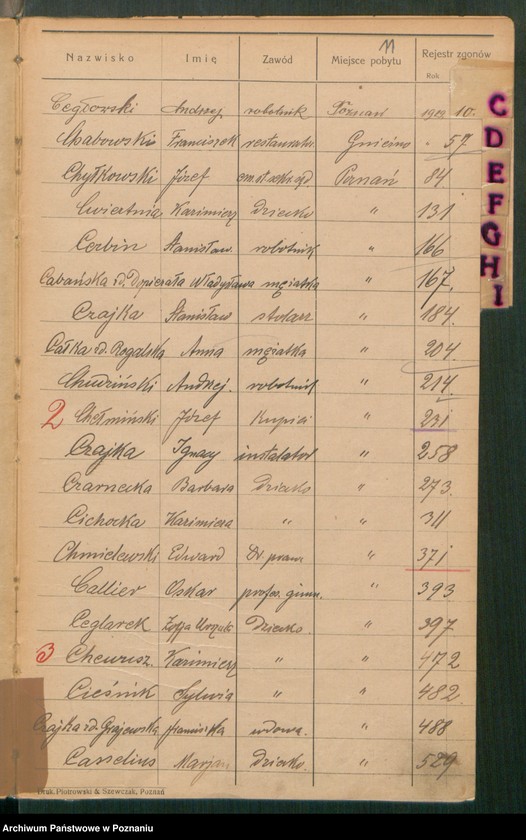 11
Nazwisko Imię Zawód Miejsce pobytu Rejestr zgonów
Rok
Cegłowski Andrzej robotnik Poznań 1912 10.
Chabowski Franciszek restaurator Gniezno " 57
Chyłkowski Józef Poznań 84
Ćwiertnia Kazimierz Dziecko " 131
Cerbin Stanisław robotnik " 166
Cabańska z d. Dopierała Władysława mężatka " 167.
Czajka Stanisław stolarz " 184.
Całka z d. Rogalska Anna mężatka " 204
Chudziński Andrzej. robotnik " 214.
2 Chełmiński Józef Kupiec " 231
Czajka Ignacy instalator " 258
Czarnecka Barbara Dziecko " 273.
Cichocka Kazimiera " " 311
Chmielewski Edward Dr. praw " 371
Callier Oskar profes. gimn. " 393
Ceglarek Zofja Dziecko. " 397
3 Kazimierz " " 472
Cieśnik Sylwia " " 482.
Czajka z d. Grajewska Franciszka wdowa. " 488
Casselius Marjan dziecko. " 529
C
D
E
F
G
H
I
Druk. Piotrowski & Szewczak, Poznań
Archiwum Państwowe w Poznaniu